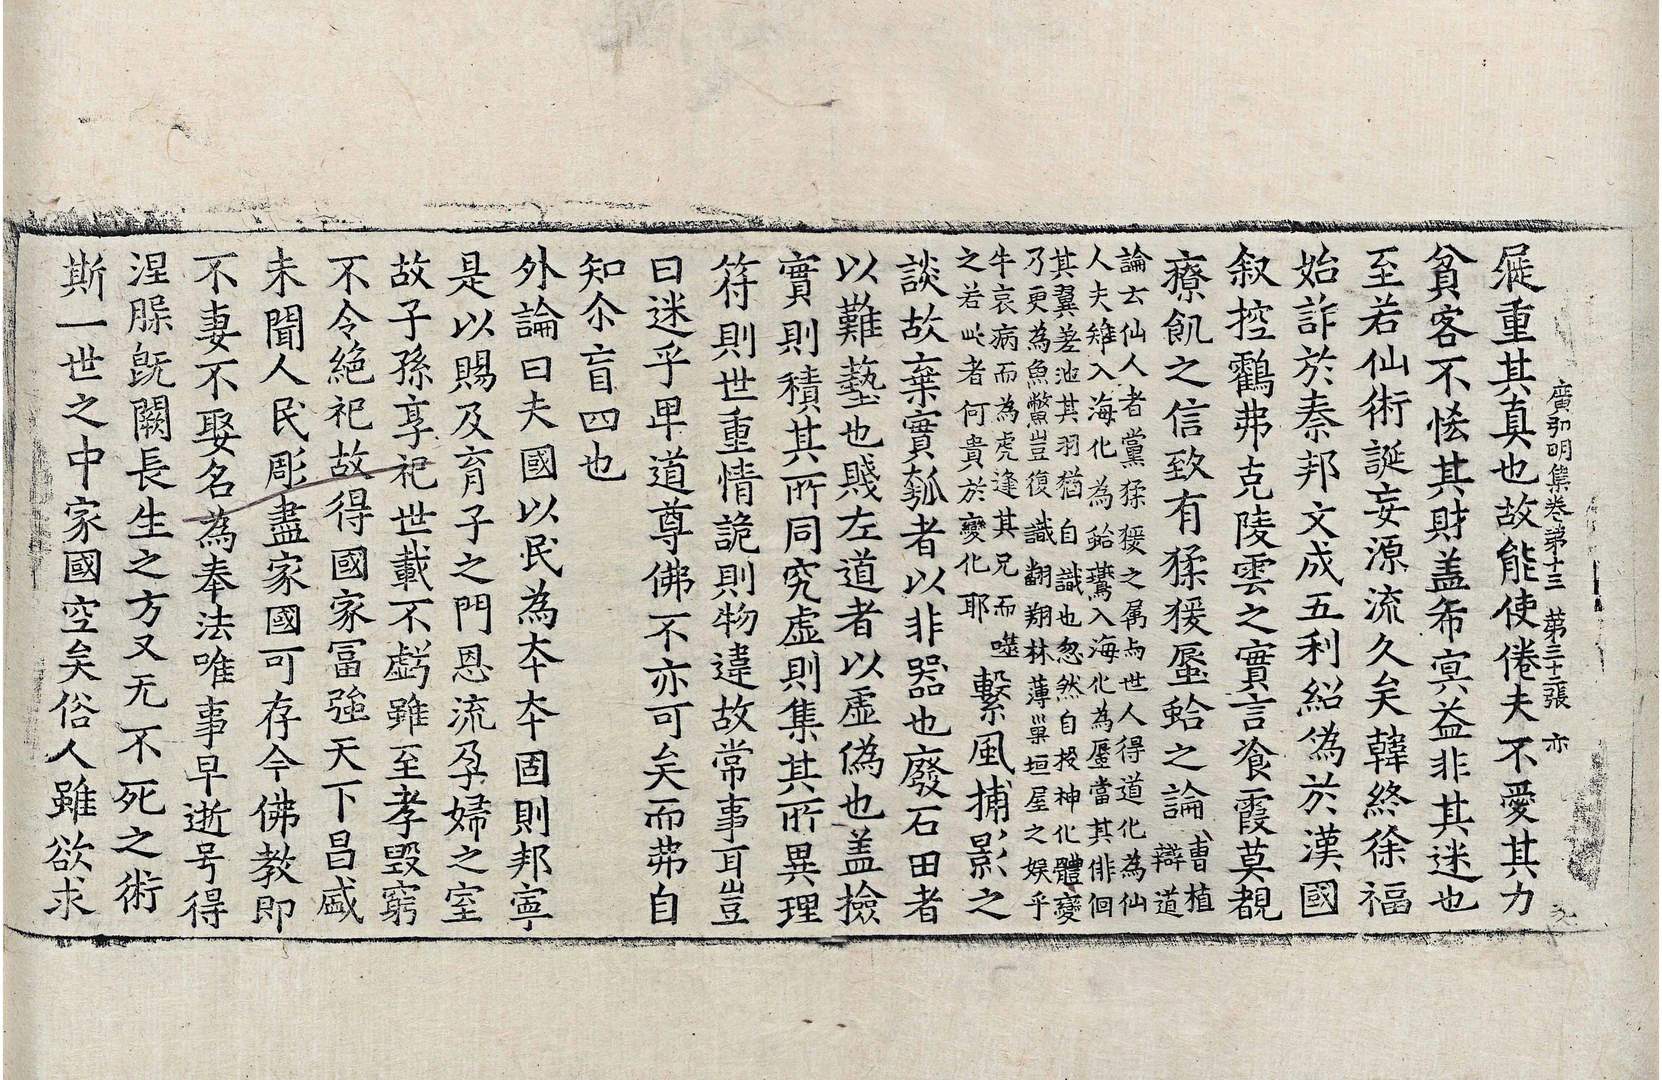 廣弘明集卷第十三　第三十二張　亦
屣重其真也故能使倦夫不愛其力
貧客不悋其財盖希冥益非其迷也
至若仙術誕妄源流久矣韓終徐福
始詐於秦邦文成五利紹偽於漢國
叙控鸖弗克陵雲之實言飡霞莫覩
療飢之信致有猱猨蜃蛤之論曹植
辯道
論云仙人者黨猱猨之属与世人得道化為仙
人夫雉入海化為蛤鷰入海化為蜃當其徘徊
其翼差池其羽猶自識也忽然自投神化體變
乃更為魚鱉豈復識翻翔林薄巢垣屋之娱乎
牛哀病而為虎逢其兄而噬
之若此者何貴於變化耶
繫風捕影之
談故棄實瓠者以非器也廢石田者
以難蓺也賤左道者以虛偽也盖撿
實則積其所同究虛則集其所異理
符則世重情詭則物違故常事耳豈
曰迷乎卑道尊佛不亦可矣而弗自
知尒盲四也
外論曰夫國以民為夲夲固則邦寧
是以賜及育子之門恩流孕婦之室
故子孫享祀世載不虧雖至孝毀窮
不令絶祀故得國家冨強天下昌盛
未聞人民彫盡家國可存今佛教即
不妻不娶名為奉法唯事早逝号得
涅槃旣闕長生之方又无不死之術
斯一世之中家國空矣俗人雖欲求